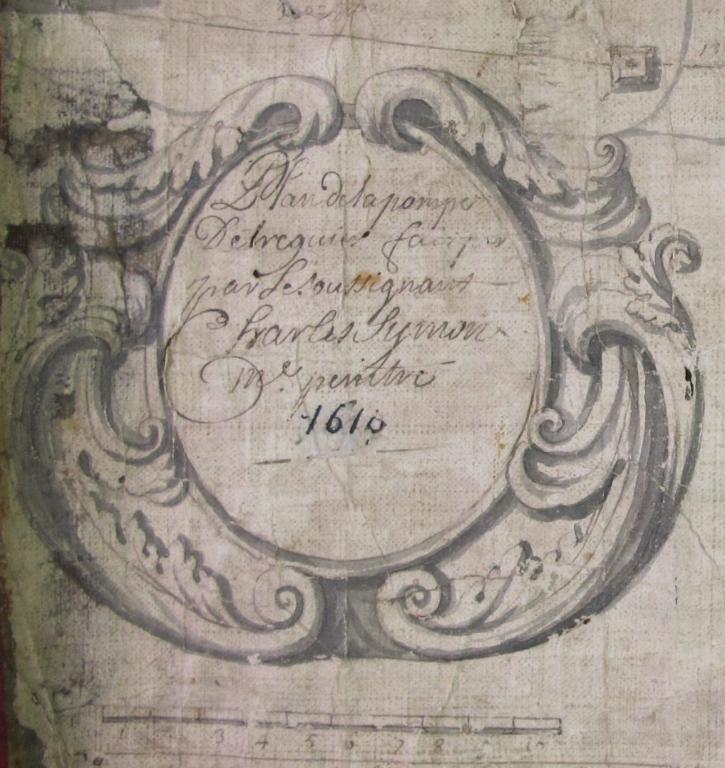 Plan de la pompe
De treguier fait
par Le Soussignant
Charles Symon
me peintre
1610
1 3 4 5 6 7 8 9 10